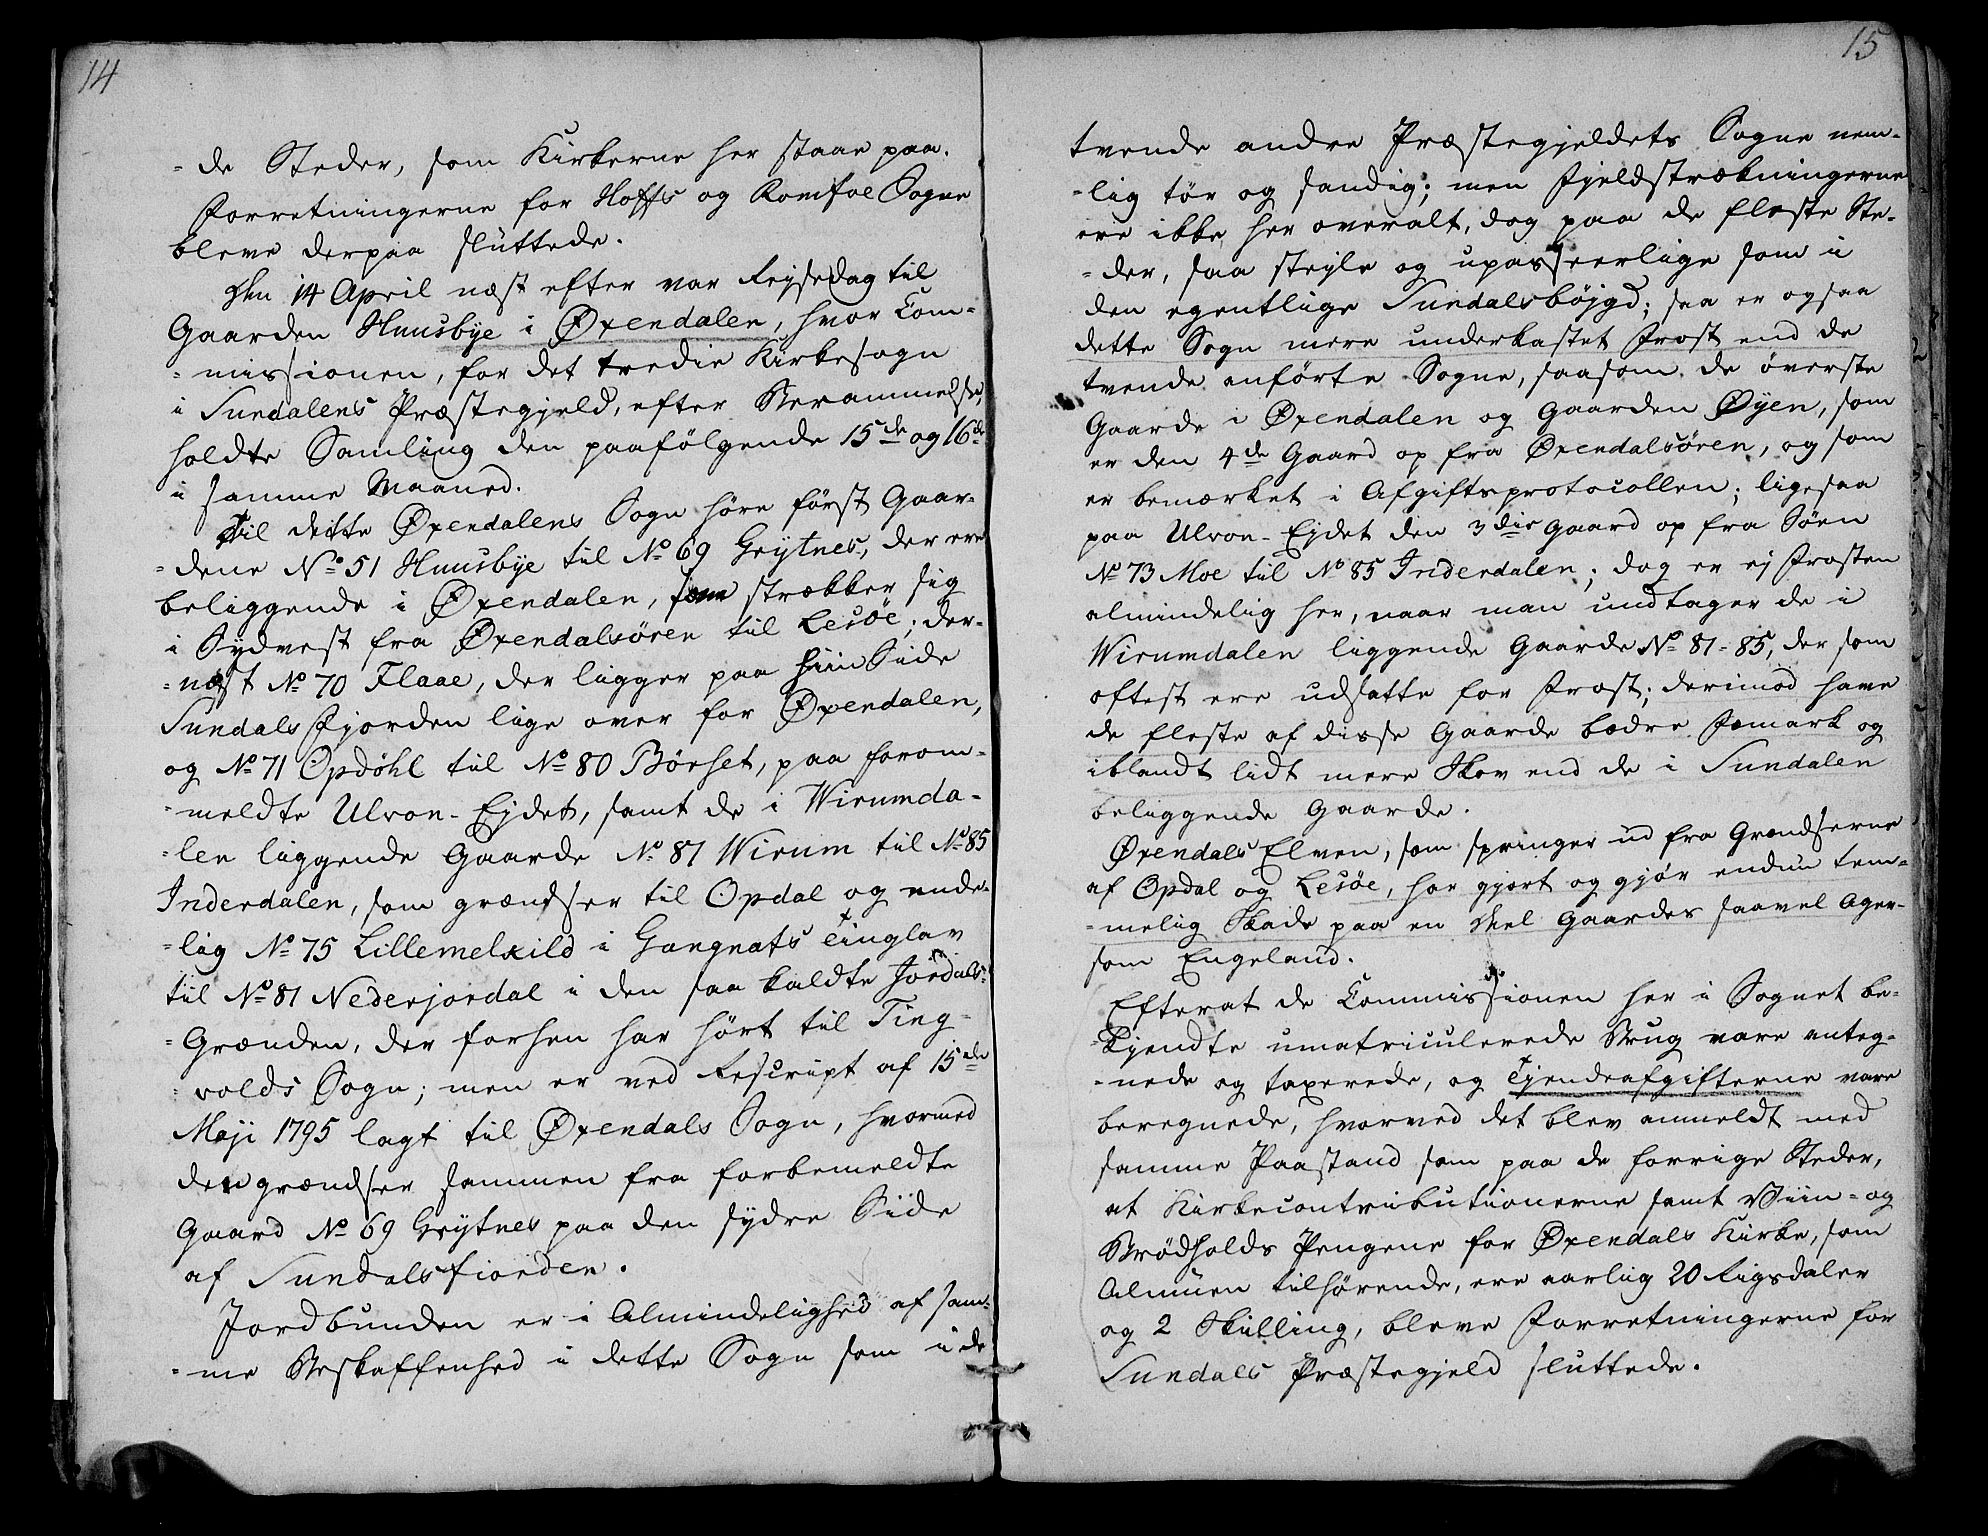 14
-de Steder, som Kirkerne her staae paa.
Forretningerne for Hoffs og Romfoe Sogne
bleve derpaa sluttede.
Den 14 April næst efter var Rejsedag til
Gaarden Huusbye i Øxendalen, hvor Com-
-missionen, for det tredie Kirkesogn
i Sundalens Præstegjeld, efter Berammelse,
holdte Samling den paafølgende 15de og 16de
i samme Maaned.
Til dette Øxendalens Sogn høre først Gaar-
-dene No 51 Huusbye til No 69 Grytnes, der ere
beliggende i Øxendalen, som strækker sig
i Sydvest fra Øxendalsøren til Lesøe; der-
-næst No 70 Flaae, der ligger paa hiin Siide
Sundals Fjorden lige over for Øxendalen,
og No 71 Opdøhl til No 80 Børset, paa forom-
-meldte Ulvon-Ejdet, samt de i Wirumda-
-len liggende Gaarde No 81 Wirum til No 85
Inderdalen, som grændser til Opdal og ende-
-lig No 75 Lillemelkild i Gangnats Tinglav
til No 81 Nederjordal i den saa kaldte Jordals-
-Grænden, der forhen har hørt til Ting-
-volds Sogn; men er ved Rescript af 15de
Maji 1795 lagt til Øxendals Sogn, hvormed
den grændser sammen fra forbemeldte
Gaard No 69 Grytnes paa den sydre Siide
af Sundalsfiorden.
Jordbunden er i Almindelighed af sam-
-me Beskaffenhed i dette Sogn som i de
15
tvende andre Præstegjeldets Sogne nem-
-lig tør og sandig; men Fjeldstrækningerne
ere ikke her overalt, dog paa de fleste Ste-
-der, saa stejle og upasseerlige som i
den egentlige Sundalsbøjgd; saa er ogsaa
dette Sogn mere underkastet Frost end de
tvende anførte Sogne, saasom de øverste
Gaarde i Øxendalen og Gaarden Øyen, som
er den 4de Gaard op fra Øxendalsøren, og som
er bemærket i Afgiftsprotocollen; ligesaa
paa Ulvon-Ejdet den 3die Gaard op fra Søen
No 73 Moe til No 85 Inderdalen; dog er ej Frosten
almindelig her, naar man undtager de i
Wirumdalen liggende Gaarde No 81-85, der som
oftest ere udsatte for Frost; derimod have
de fleste af disse Gaarde bedre Fæmark og
iblandt lidt mere Skov end de i Sundalen
beliggende Gaarde.
Øxendals Elven, som springer ud fra Grændserne
af Opdal og Lesøe, har gjort og gjør endnu tem-
-melig Skade paa en Deel Gaardes saavel Ager-
som Engeland.
Efterat de Commissionen her i Sognet be-
-kjendte umatriculerede Brug vare anteg-
-nede og taxerede, og Tjendeafgifterne vare
beregnede, hvorved det blev anmeldt med
samme Paastand som paa de forrige Steder,
at Kirkecontributionerne samt Viin- og
Brødholds Pengene for Øxendals Kirke, som
Almuen tilhørende, ere aarlig 20 Rigsdaler
og 2 Skilling, bleve Forretningerne for
Sundals Præstegjeld sluttede.